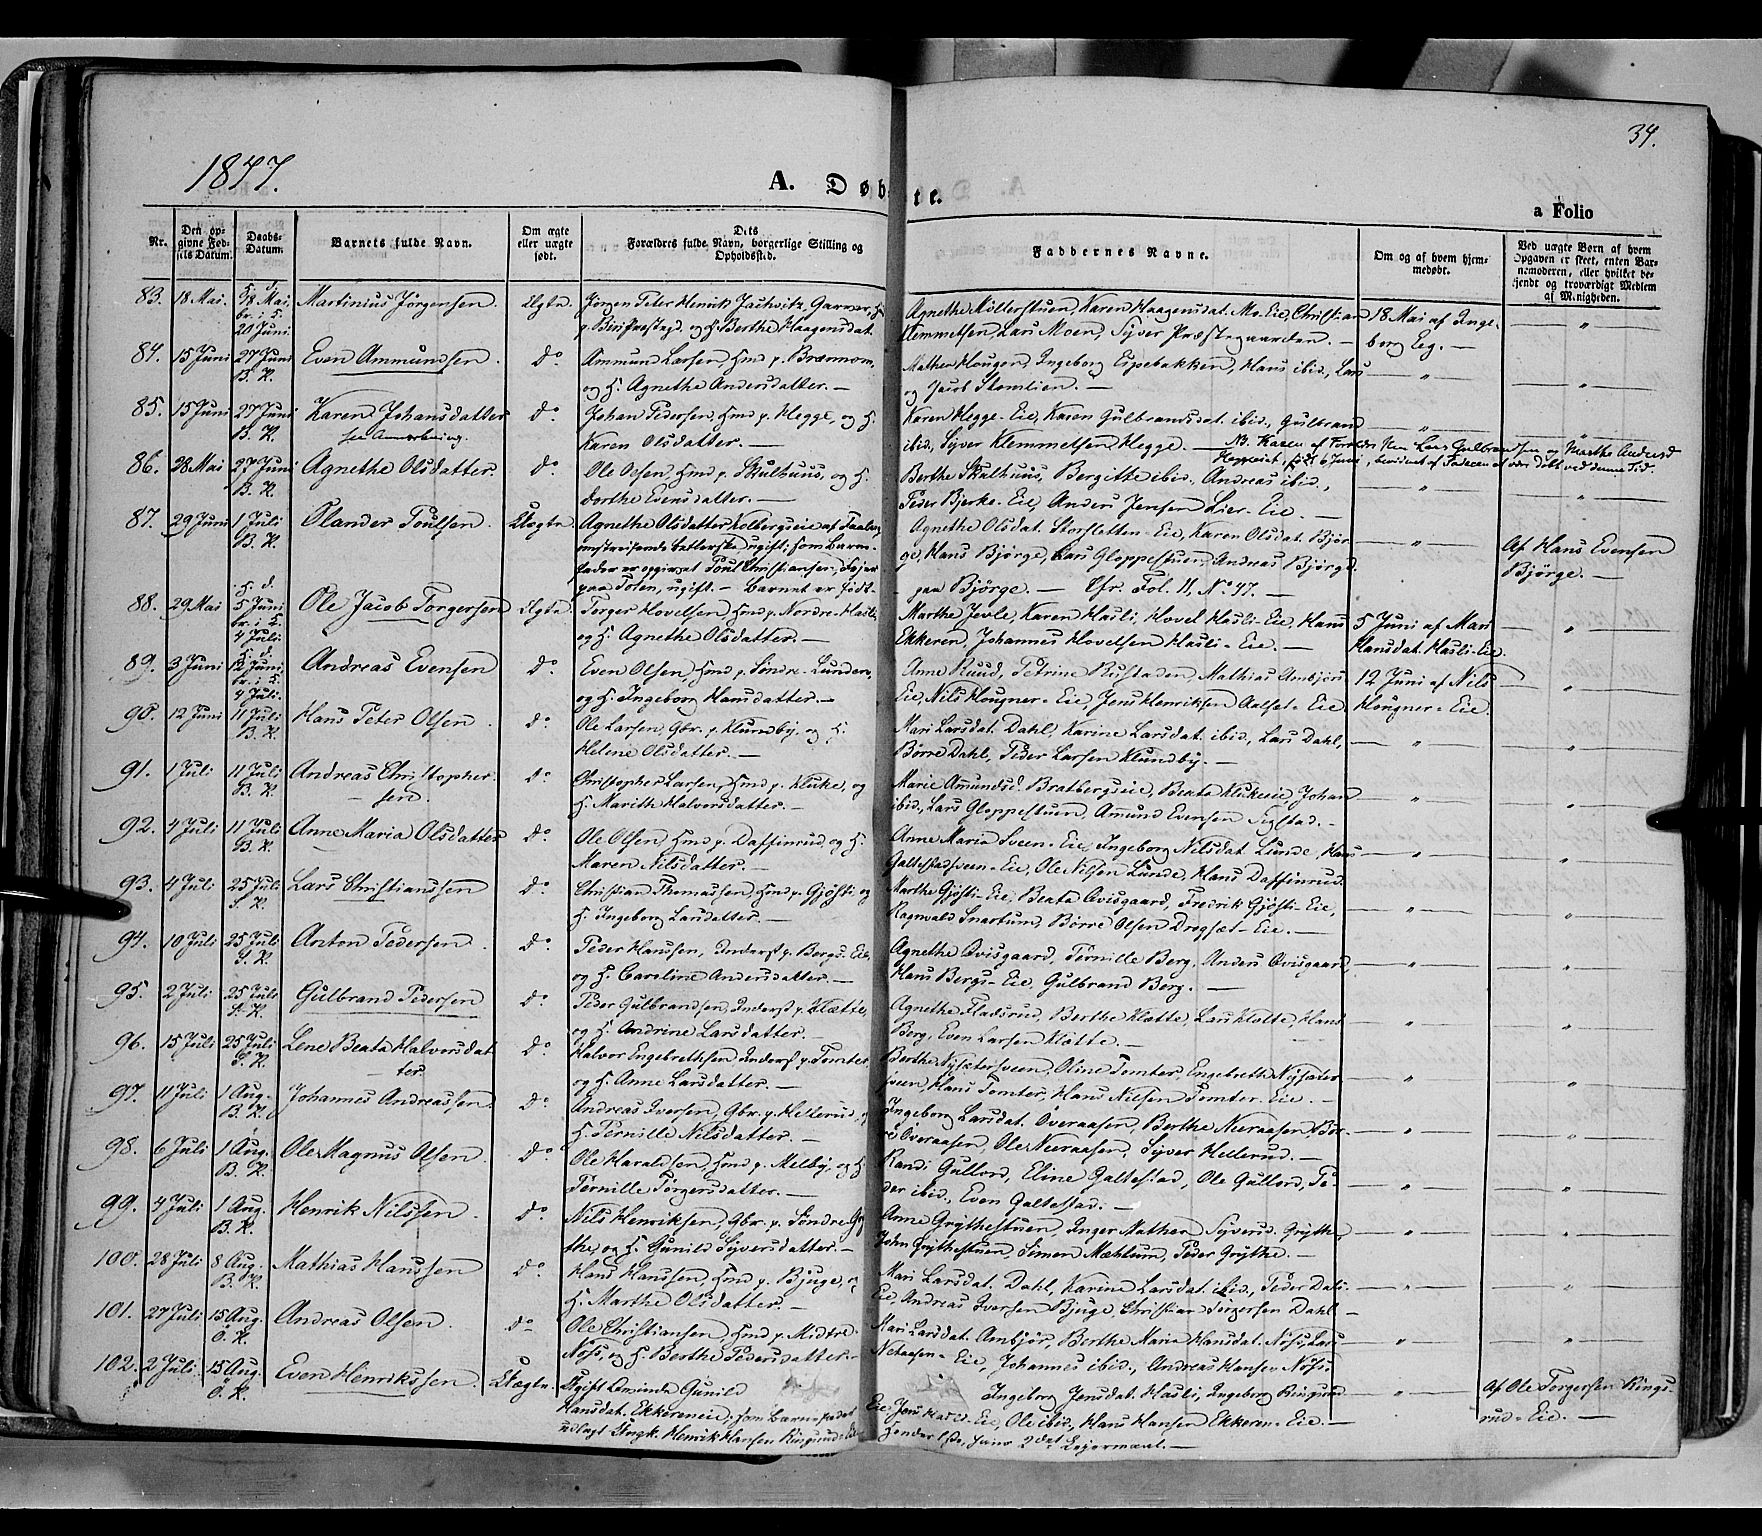 34.
1847.
A. Døbte.
a Folio
Nr.
Den op-
givne Fød-
sels Datum.
Daabs-
Datum.
Barnets fulde Navn.
Om ægte
eller uægte
født.
Dets
Forældres fulde Navn, borgerlige Stilling og
Opholdssted.
Faddernes Navne.
Om og af hvem hjem-
medøbt.
Ved uægte Børn af hvem
Opgaven er skeet, enten Bar-
nemoderen, eller hvilket be-
kjendt og troværdigt Medlem
af Menigheden.
83. 18 Mai. h. d. 18 Mai. br. i K. 20 Juni. Martinius Jörgensen. Ægte. Jörgen Peter Henrik Garver,
p. Biri Præstegd. og H. Berthe Haagensdat.
Agnethe Möllerstuen, Karen Haagensdat. Mo-Eie, Christian
Klemmetsen, Lars Moen, Syver Præstegaarden. —
18 Mai af Inge-
borg Eeg. —
84. 15 Juni 27 Juni B. K. Even Ammundsen. Do. Ammund Larsen, Hmd p. Brænnom,
og H. Agnethe Andersdatter. —
Mathea Houger, Ingeborg Espebakken, Hans ibid., Lars
og Jacob Stomlien. —
85. 15 Juni 27 Juni B. K. Karen Johansdatter Do. Johan Pedersen, Hmd p. Hegge, og H.
see Anmerkning.
Karen Olsdatter. —
Karen Hegge-Eie, Karen Gulbrandsdat. ibid., Gulbrand
ibid., Syver Klemmetsen Hegge. —
86. 28 Mai 27 Juni B. K. Agnethe Olsdatter. Do. Ole Olsen, Hmd p. Skulhuus, og H.
Dorthe Evensdatter. —
Berthe Skulhuus, Bergitte ibid., Andreas ibid.,
Peder Bjerke-Eie, Anders Jensen Lier-Eie. —
87. 29 Juni 1 Juli B. K. Olander Poulsen. Uægte. Agnethe Olsdatter Kolbergseie af Faaberg
omstreifende Betlerske ugift; som Barne-
fader er opgivet Poul Christiansen,
paa Toten, ugift. — Barnet er födt
paa Björge. — Cfr. Fol. 11, No 47. —
Agnethe Olsdat. Storsletten-Eie, Karen Olsdat. Björ-
ge, Hans Björge, Lars Gloppestuen, Andreas Björge.
Af Hans Evensen
Björge. —
88. 29 Mai h. d. 5 Juni br. i K. 4 Juli. Ole Jacob Torgersen Ægte. Torger Hovelsen, Hmd p. Nordre-Hasli,
og H. Agnethe Olsdatter. —
Marthe Jevle, Karen Hasli, Hovel Hasli-Eie, Hans
Ekkeren, Johannes Hovelsen Hasli-Eie. —
5 Juni af Mari
Hansdat. Hasli-Eie
89. 3 Juni h. d. 12 Juni br. i K. 4 Juli. Andreas Evensen Do. Even Olsen, Hmd p. Söndre-Lunderen,
og H. Ingeborg Hansdatter. —
Anne Ruud, Petrine Rustaden, Mathias Ambjör-
Eie, Nils Hougner-Eie, Jens Henriksen Aalset-Eie.
12 Juni af Nils
Hougner-Eie.
90. 12 Juni 11 Juli B. K. Hans Peter Olsen Do. Ole Larsen, Gbr. p. Klundby, og H.
Helene Olsdatter. —
Mari Larsdat. Dahl, Karine Larsdat. ibid., Lars Dahl,
Börre Dahl, Peder Larsen Klundby. —
91. 1 Juli 11 Juli B. K. Andreas Christopher-
sen. Do. Christopher Larsen, Hmd p. Kluke, og
H. Marithe Halvorsdatter. —
Marie Amundsd. Bratbergseie, Beata Klukeeie, Johan
ibid., Lars Gloppestuen, Amund Evensen Sigstad. —
92. 4 Juli 11 Juli B. K. Anne Maria Olsdatter Do. Ole Olsen, Hmd p. Daffinrud, og H.
Maren Nilsdatter. —
Anne Maria Sveen-Eie, Ingeborg Nilsdat. Lunde, Hans
Galtestadsveen-Eie, Ole Nilsen Lunde, Hans Daffinrud.
93. 4 Juli 25 Juli S. K. Lars Christianssen Do. Christian Thomassen, Hmd p. Gjösti og
H. Ingeborg Larsdatter. —
Marthe Gjösti-Eie, Beata Qvisgaard, Fredrik Gjösti-Eie,
Ragnvald Snartum, Börre Olsen Drogset-Eie. —
94. 10 Juli 25 Juli S. K. Anton Pedersen Do. Peder Hanssen, Inderst p. Bergs-Eie
og H. Caroline Andersdatter. —
Agnethe Qvisgaard, Pernille Berg, Anders Qvisgaard,
Hans Bergs-Eie, Gulbrand Berg. —
95. 2 Juli 25 Juli S. K. Gulbrand Pedersen Do. Peder Gulbrandsen, Inderst p. Klætte,
og H. Andrine Larsdatter. —
Agnethe Fladsrud, Berthe Klætte, Lars Klætte, Hans
Berg, Even Larsen Klætte. —
96. 15 Juli 25 Juli S. K. Lene Beata Halvorsdat-
ter. Do. Halvor Engebrethsen Inderst p. Tomter,
og H. Anne Larsdatter. —
Berthe Nysætersveen, Oline Tomter, Engebreth Nysæter-
sveen, Hans Tomter, Hans Nilsen Tomter-Eie. —
97. 11 Juli 1 Aug. B. K. Johannes Andreassen. Do. Andreas Iversen, Gbr. p. Hellerud, og
H. Pernille Nilsdatter. —
Ingeborg Larsdat. Överaasen, Berthe Neeraasen, Bör-
re Överaasen, Ole Neeraasen, Syver Hellerud. —
98. 6 Juli 1 Aug. B. K. Ole Magnus Olsen. Do. Ole Haraldsen, Hmd p. Melby, og H.
Pernille Torgersdatter. —
Randi Gullord, Eline Galtestad, Ole Gullord, Pe-
der ibid., Even Galtestad. —
99. 4 Juli 1 Aug. B. K. Henrik Nilssen. Do. Nils Henriksen, Gbr. p. Söndre Gry-
the, og H. Gunild Syversdatter. —
Anne Grythestuen, Inger Mathea Syversd. Grythe,
John Grythestuen, Simen Mæhlum, Peder Grythe. —
100. 28 Juli 8 Aug. B. K. Mathias Hanssen Do. Hans Hanssen, Hmd p. Bjuge, og
H. Marthe Olsdatter. —
Mari Larsdat. Dahl, Karine Larsdat. ibid., Peder Dals-
Eie, Andreas Iversen Bjuge, Christian Torgersen Dahl —
101. 27 Juli 15 Aug. Ö. K. Andreas Olsen. Do. Ole Christiansen, Hmd p. Midtre
Nöss, og H. Berthe Pedersdatter. —
Mari Larsdat. Ambjör, Berthe Maria Hansdat. Nöss, Lars
Netaasen-Eie, Johannes ibid., Andreas Hansen Nöss.
102. 2 Juli. 15 Aug. Ö. K. Even Henrikssen. Uægte. Ugift Gunild
Hansdat. Ekkereneie, som Barnefader
udlagt Ungk. Henrik Hansen Ringsrud-Eie
Ingeborg Jensdat. Hasli, Ingeborg Ringsrud
Eie, Jens Eie, Ole ibid., Hans Hansen Ekkeren-Eie. —
Hendes 1ste, hans 2det Leiermaal. —
Af Ole Torgersen Rings-
rud-Eie. —